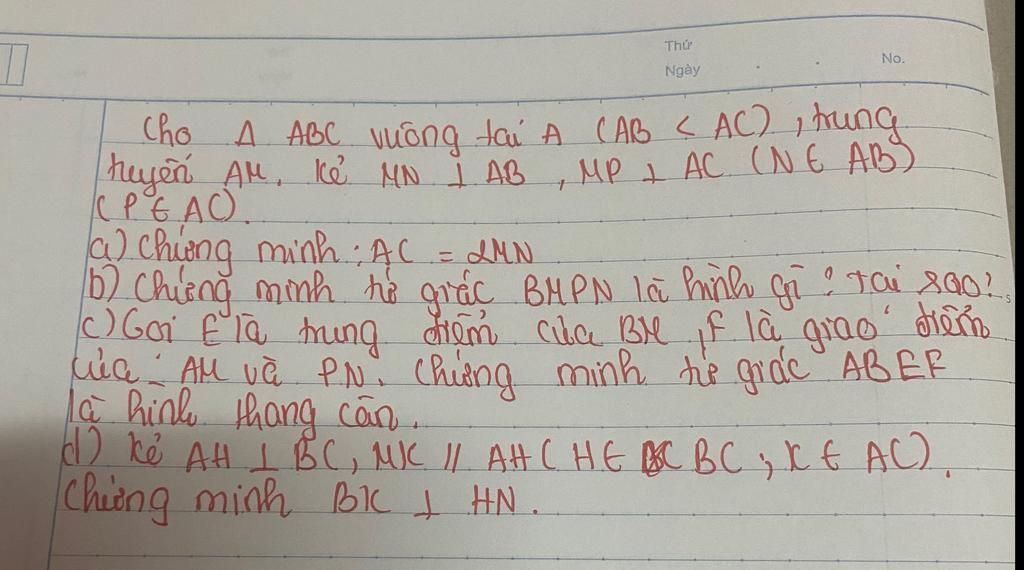 Thứ
Ngày . . No.
Cho Δ ABC vuông tại A (AB < AC), trung
tuyến AM. Kẻ MN ⊥ AB, MP ⊥ AC (N ∈ AB)
(P ∈ AC).
a) Chứng minh: AC = 2MN
b) Chứng minh tứ giác BMPN là hình gì? tại sao?
c) Gọi E là trung điểm của BM, F là giao điểm
của AM và PN. Chứng minh tứ giác ABEF
là hình thang cân.
d) Kẻ AH ⊥ BC, MK // AH (H ∈ BC; K ∈ AC).
Chứng minh BK ⊥ HN.